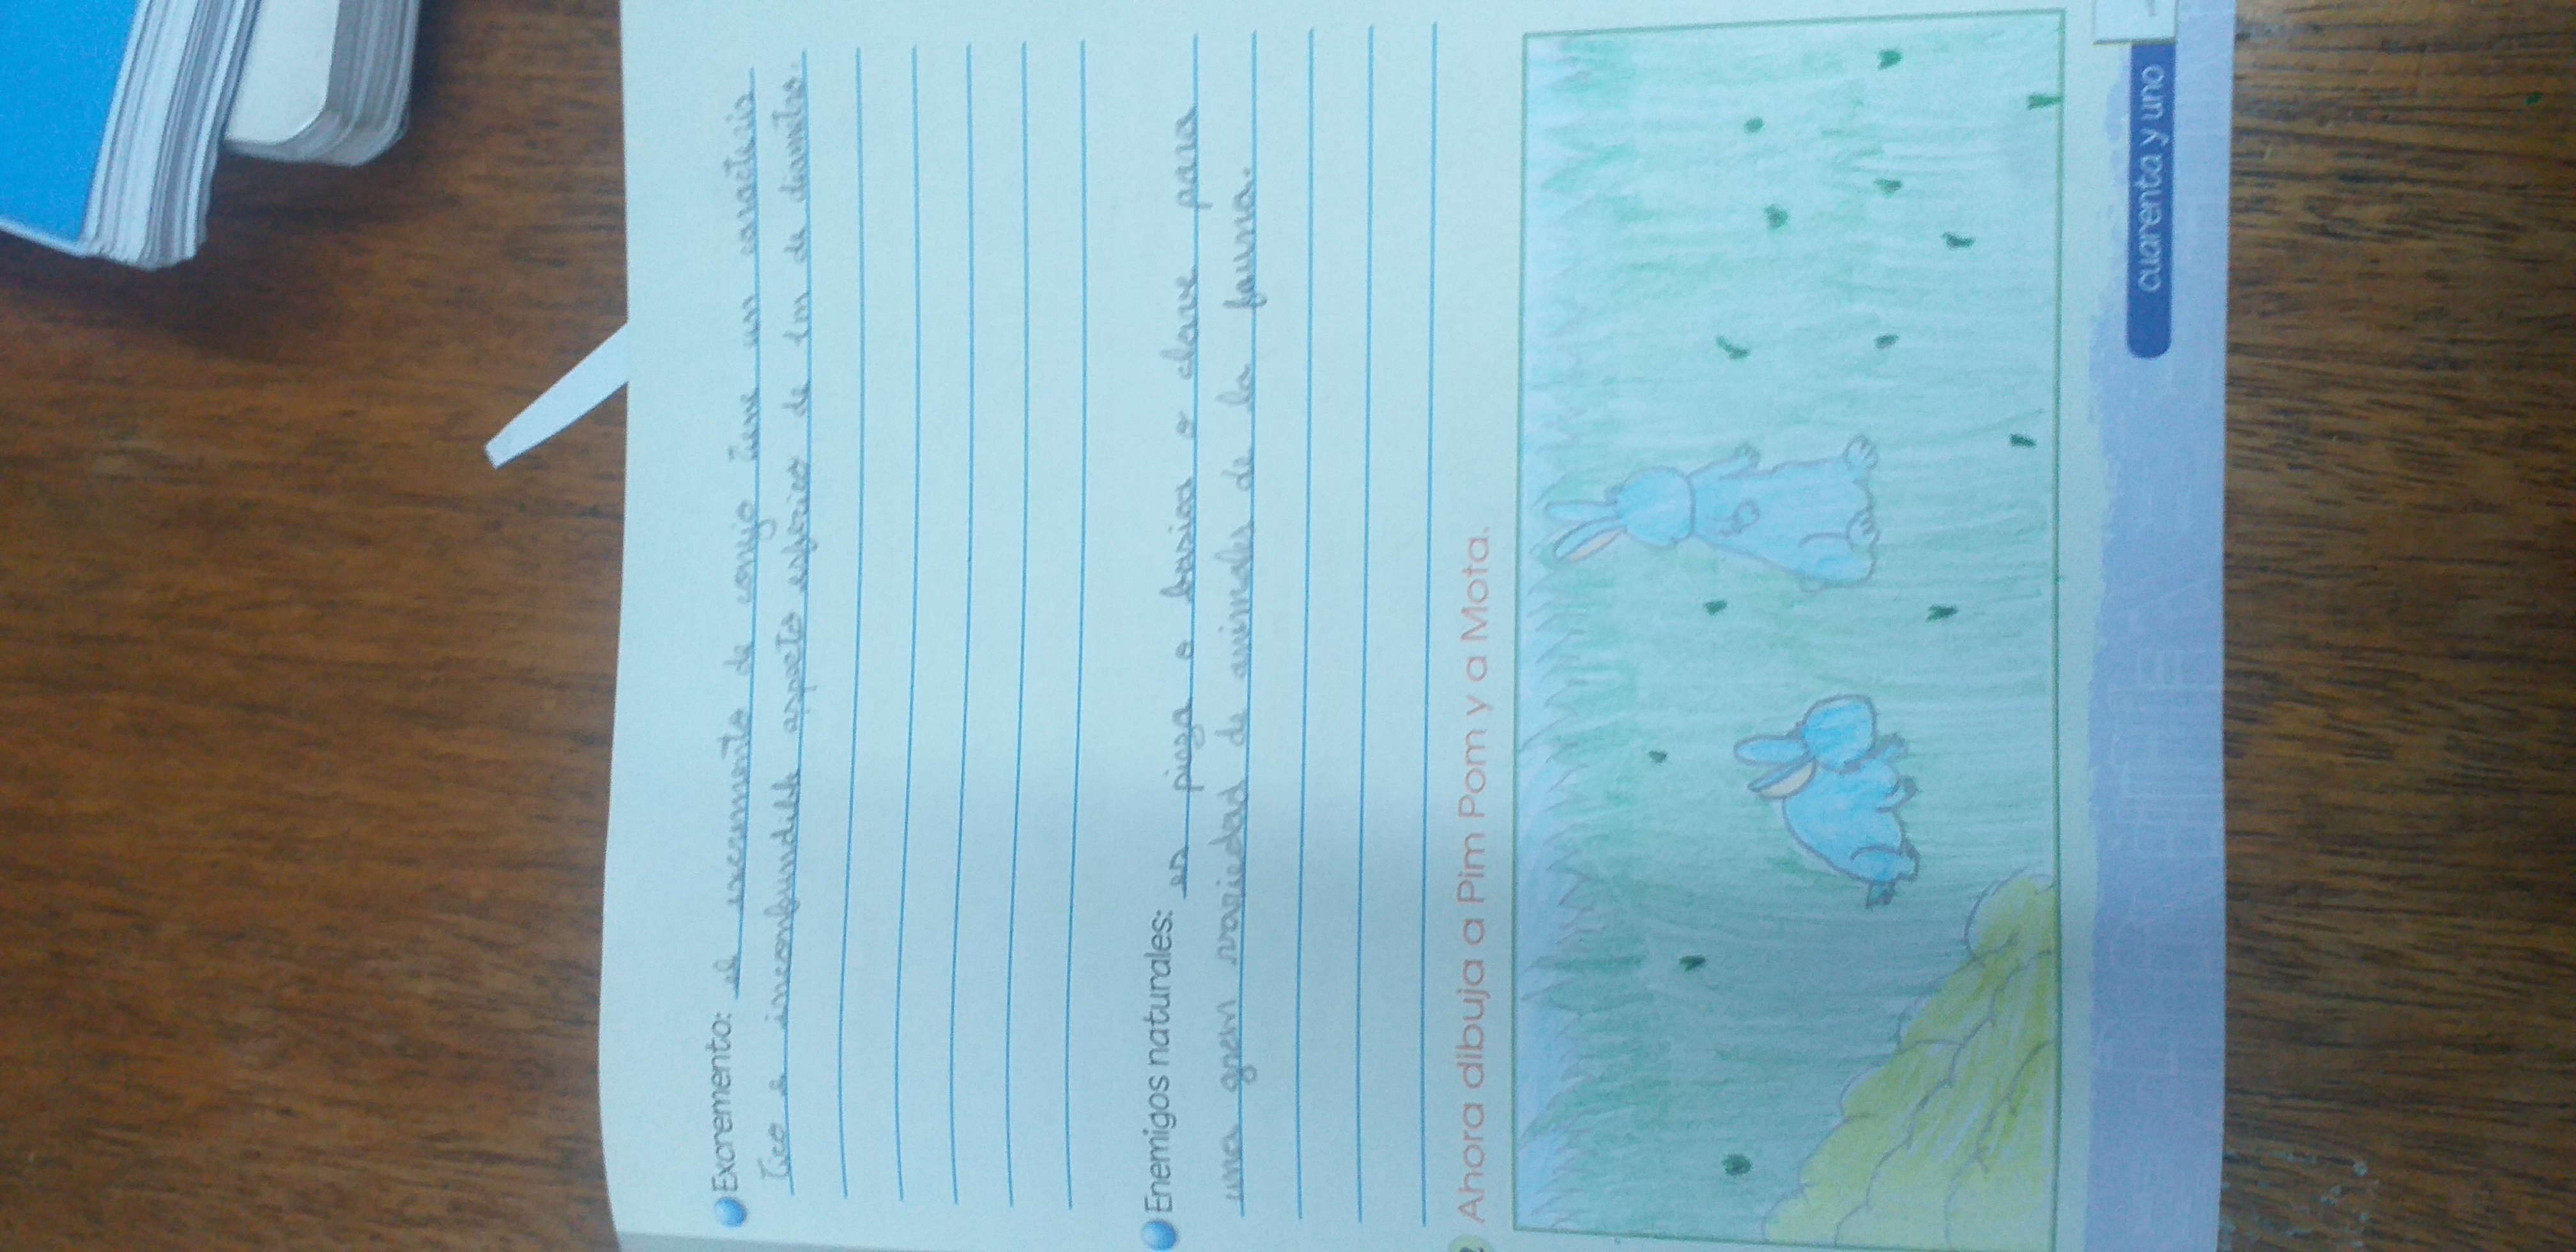 Excremento: el excremento de conejo tiene un caracteris
tico e inconfundible aspecto esferico de 1m de diametro.
Enemigos naturales: es pieza o basica o clave para
una gran variedad de animales de la fauna.
2 Ahora dibuja a Pim Pom y a Mota.
cuarenta y uno